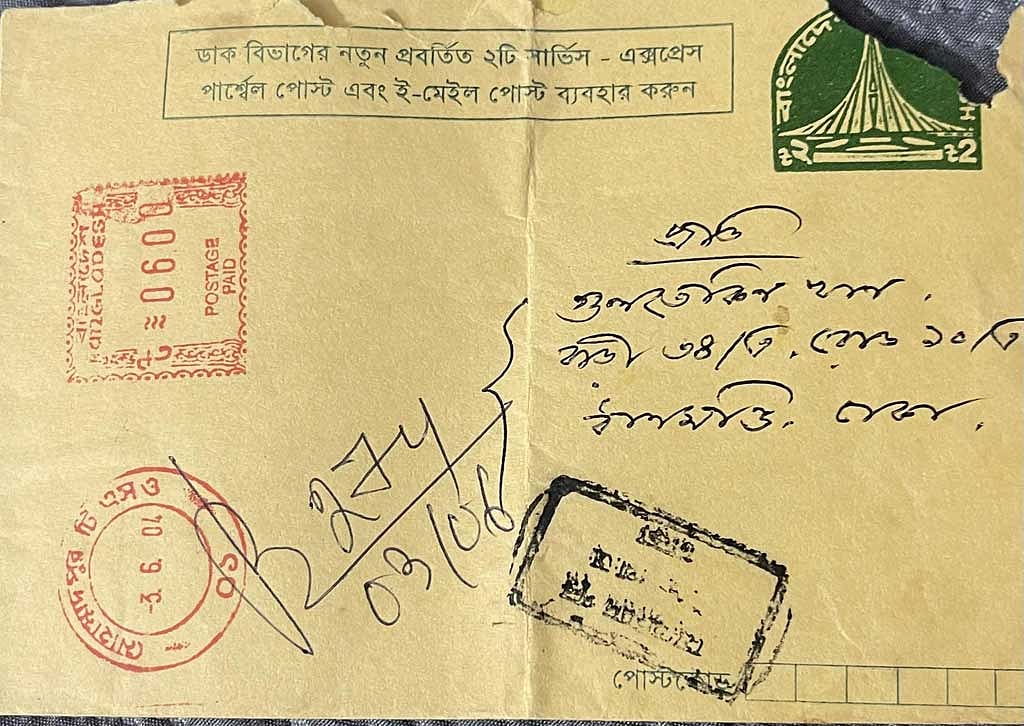 ডাক বিভাগের নতুন প্রবর্তিত ২টি সার্ভিস - এক্সপ্রেস
পার্শ্বেল পোস্ট এবং ই-মেইল পোস্ট ব্যবহার করুন
বাংলাদে
২ 2
বাংলাদেশ
BANGLADESH
0600
POSTAGE
PAID
প্রতি
গুলতেকিন খান.
বাড়ী ৩৪/বি. রোড ১০এ
ধানমন্ডি. ঢাকা.
মোহাম্মদপুর টি এসও
-3. 6. 04
পোস্টকোড